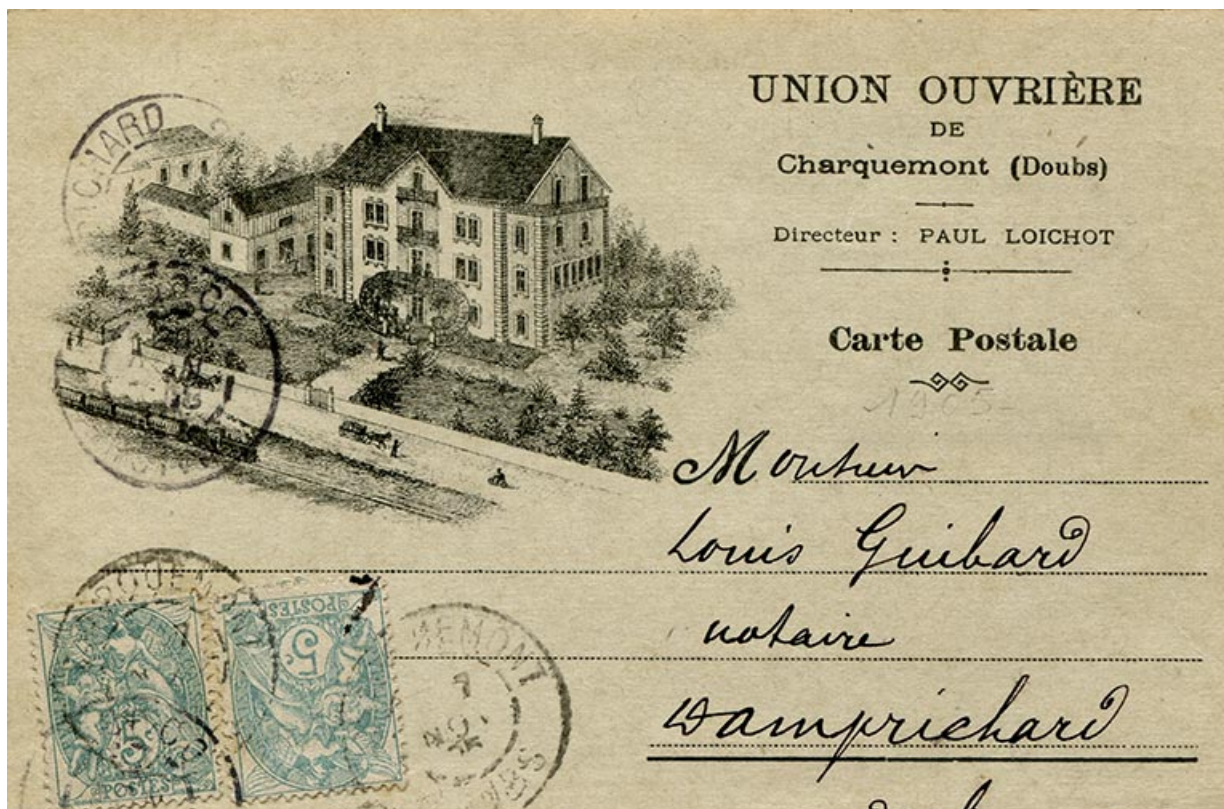 UNION OUVRIÈRE
DE
Charquemont (Doubs)
Directeur : PAUL LOICHOT
Carte Postale
1905
Monsieur
Louis Guibard
notaire
Damprichard
POSTES
5c
POSTES
5c
EMONT
7